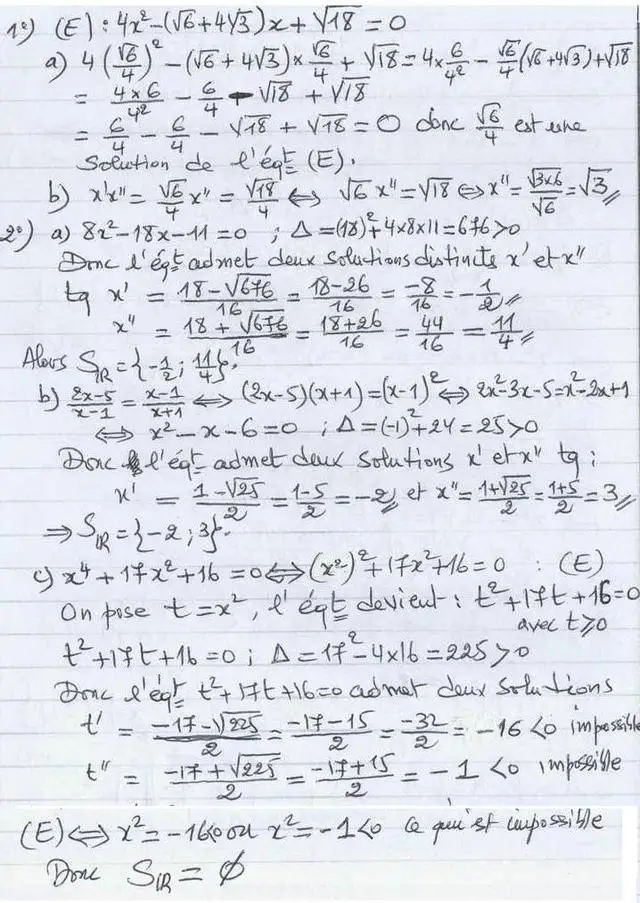 1°) (E) : 4x² - (√6 + 4√3)x + √18 = 0
a) 4(√6/4)² - (√6 + 4√3) × √6/4 + √18 = 4 × 6/4² - √6/4 (√6 + 4√3) + √18
= 4×6/4² - 6/4 - √18 + √18
= 6/4 - 6/4 - √18 + √18 = 0 donc √6/4 est une
solution de l'éqt (E).
b) x'x'' = √6/4 x'' = √18/4 ⟺ √6 x'' = √18 ⟺ x'' = √3×6/√6 = √3 //
2°) a) 8x² - 18x - 11 = 0 ; Δ = (18)² + 4×8×11 = 676 > 0
Donc l'éqt admet deux solutions distincts x' et x''
tq x' = 18 - √676/16 = 18 - 26/16 = -8/16 = -1/2 //
x'' = 18 + √676/16 = 18 + 26/16 = 44/16 = 11/4 //
Alors S_IR = {-1/2 ; 11/4}.
b) 2x-5/x-1 = x-1/x+1 ⟺ (2x-5)(x+1) = (x-1)² ⟺ 2x²-3x-5 = x²-2x+1
⟺ x² - x - 6 = 0 ; Δ = (-1)² + 24 = 25 > 0
Donc l'éqt admet deux solutions x' et x'' tq :
x' = 1 - √25/2 = 1-5/2 = -2 // et x'' = 1+√25/2 = 1+5/2 = 3 //
⟹ S_IR = {-2 ; 3}.
c) x⁴ + 17x² + 16 = 0 ⟺ (x²)² + 17x² + 16 = 0 : (E)
On pose t = x², l'éqt devient : t² + 17t + 16 = 0
avec t ≥ 0
t² + 17t + 16 = 0 ; Δ = 17² - 4×16 = 225 > 0
Donc l'éqt t² + 17t + 16 = 0 admet deux solutions
t' = -17 - √225/2 = -17 - 15/2 = -32/2 = -16 < 0 impossible
t'' = -17 + √225/2 = -17 + 15/2 = -1 < 0 impossible
(E) ⟺ x² = -16 < 0 ou x² = -1 < 0 ce qui est impossible
Donc S_IR = ∅